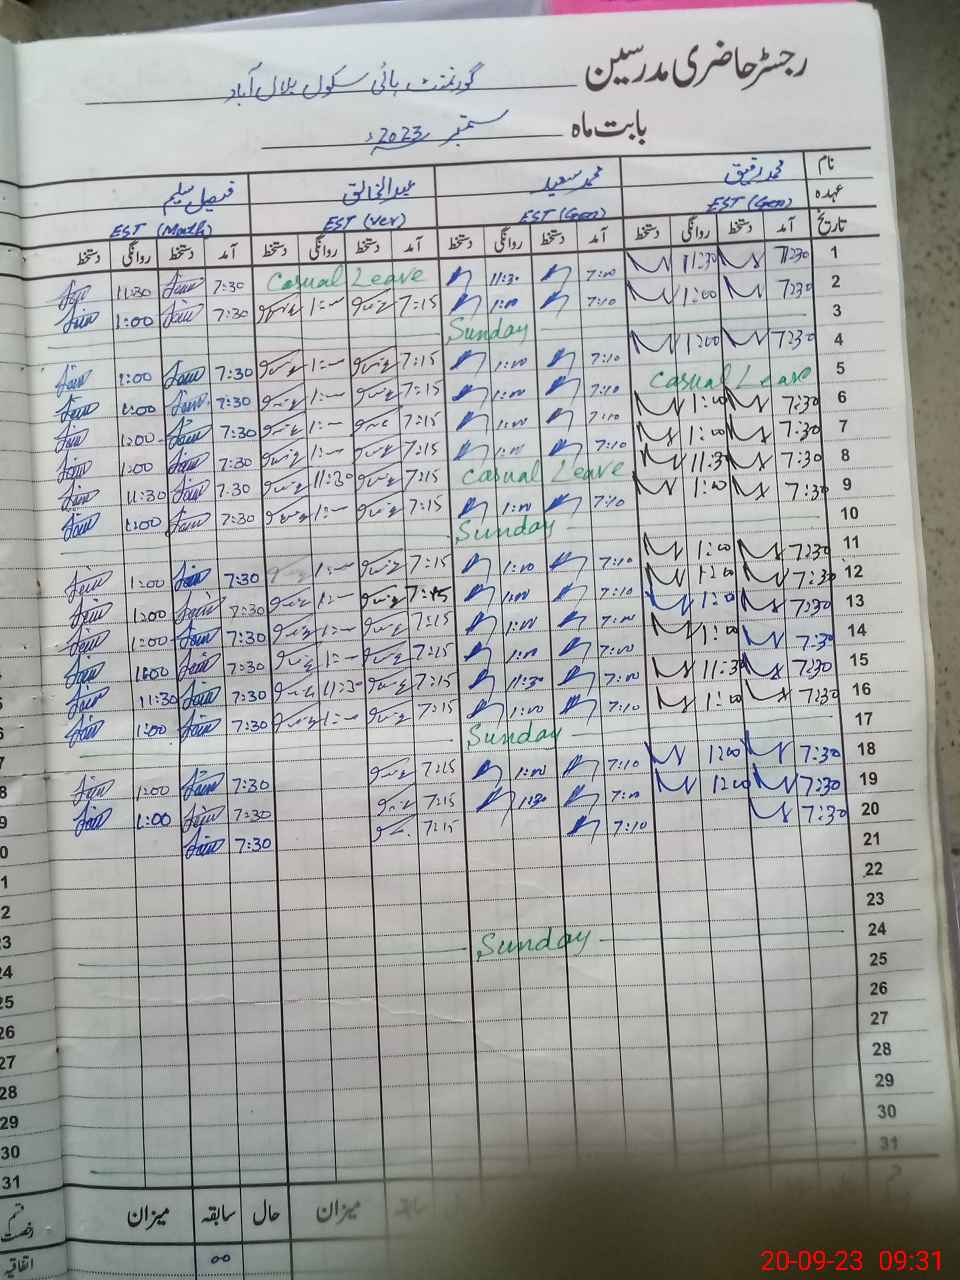 رجسٹر حاضری مدرسین گورنمنٹ ہائی سکول بلال آباد
بابت ماہ ستمبر 2023ء
نام محمد رفیق محمد سعید عبدالخالق فیصل سلیم
عہدہ EST (Gen) EST (Gen) EST (Ver) EST (Math)
تاریخ آمد دستخط روانگی دستخط آمد دستخط روانگی دستخط آمد دستخط روانگی دستخط آمد دستخط روانگی دستخط
1 7:30 11:30 7:00 11:30 Casual Leave 7:30 11:30
2 7:30 1:00 7:10 1:00 7:15 1:— 7:30 1:00
3 Sunday
4 7:30 1:00 7:10 1:00 7:15 1:— 7:30 1:00
5 Casual Leave 7:10 1:00 7:15 1:— 7:30 1:00
6 7:30 1:00 7:10 1:00 7:15 1:— 7:30 1:00
7 7:30 1:00 7:10 1:00 7:15 1:— 7:30 1:00
8 7:30 11:30 Casual Leave 7:15 11:30 7:30 11:30
9 7:30 1:00 7:10 1:00 7:15 1:— 7:30 1:00
10 Sunday
11 7:30 1:00 7:10 1:00 7:15 1:— 7:30 1:00
12 7:30 1:00 7:10 1:00 7:15 1:— 7:30 1:00
13 7:30 1:00 7:00 1:00 7:15 1:— 7:30 1:00
14 7:30 1:00 7:00 1:00 7:15 1:— 7:30 1:00
15 7:30 11:30 7:00 11:30 7:15 11:30 7:30 11:30
16 7:30 1:00 7:10 1:00 7:15 1:— 7:30 1:00
17 Sunday
18 7:30 1:00 7:10 1:00 7:15 7:30 1:00
19 7:30 1:00 7:00 1:30 7:15 7:30 1:00
20 7:30 7:10 7:15 7:30
21
22
23
24 Sunday
25
26
27
28
29
30
31
میزان سابقہ حال میزان سابقہ
قسم رخصت
اتفاقیہ 00
20-09-23 09:31